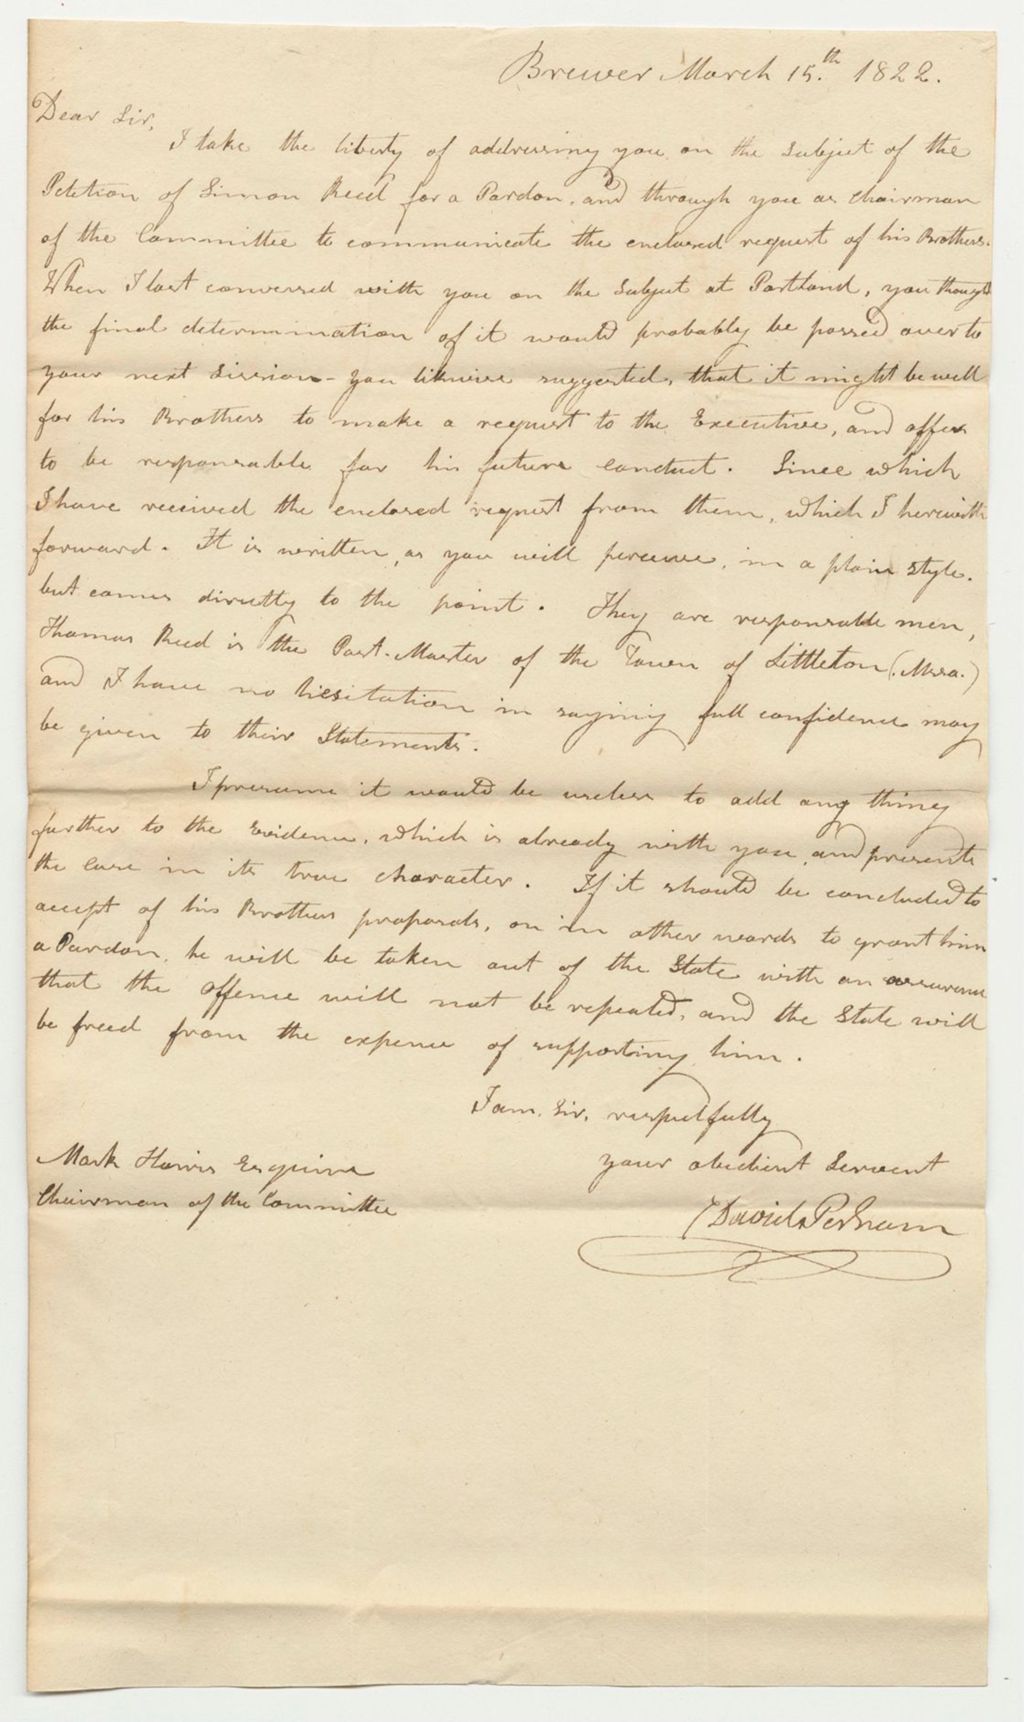 Brewer March 15.th 1822.
Dear Sir,
I take the liberty of addressing you on the subject of the
Petition of Simon Reed for a Pardon, and through you as chairman
of the Committee to communicate the enclosed request of his Brothers.
When I last conversed with you on the subject at Portland, you thought
the final determination of it would probably be passed over to
your next Session - you likewise suggested, that it might be well
for his Brothers to make a request to the Executive, and offer
to be responsable for his future conduct. Since which
I have received the enclosed request from them, which I herewith
forward. It is written, as you will perceive, in a plain style.
but comes directly to the point. They are responsable men,
Thomas Reed is the Post-Master of the Town of Littleton (Massa.)
and I have no hesitation in saying full confidence may
be given to their Statements.
I presume it would be useless to add any thing
further to the Evidence, which is already with you, and presents
the case in its true character. If it should be concluded to
accept of his Brothers proposals, or in other words to grant him
a Pardon, he will be taken out of the State with an assurance
that the offence will not be repeated, and the State will
be freed from the expence of supporting him.
I am, Sir, respectfully
your obedient Servent
David Perham
Mark Harris Esquire
Chairman of the Committee